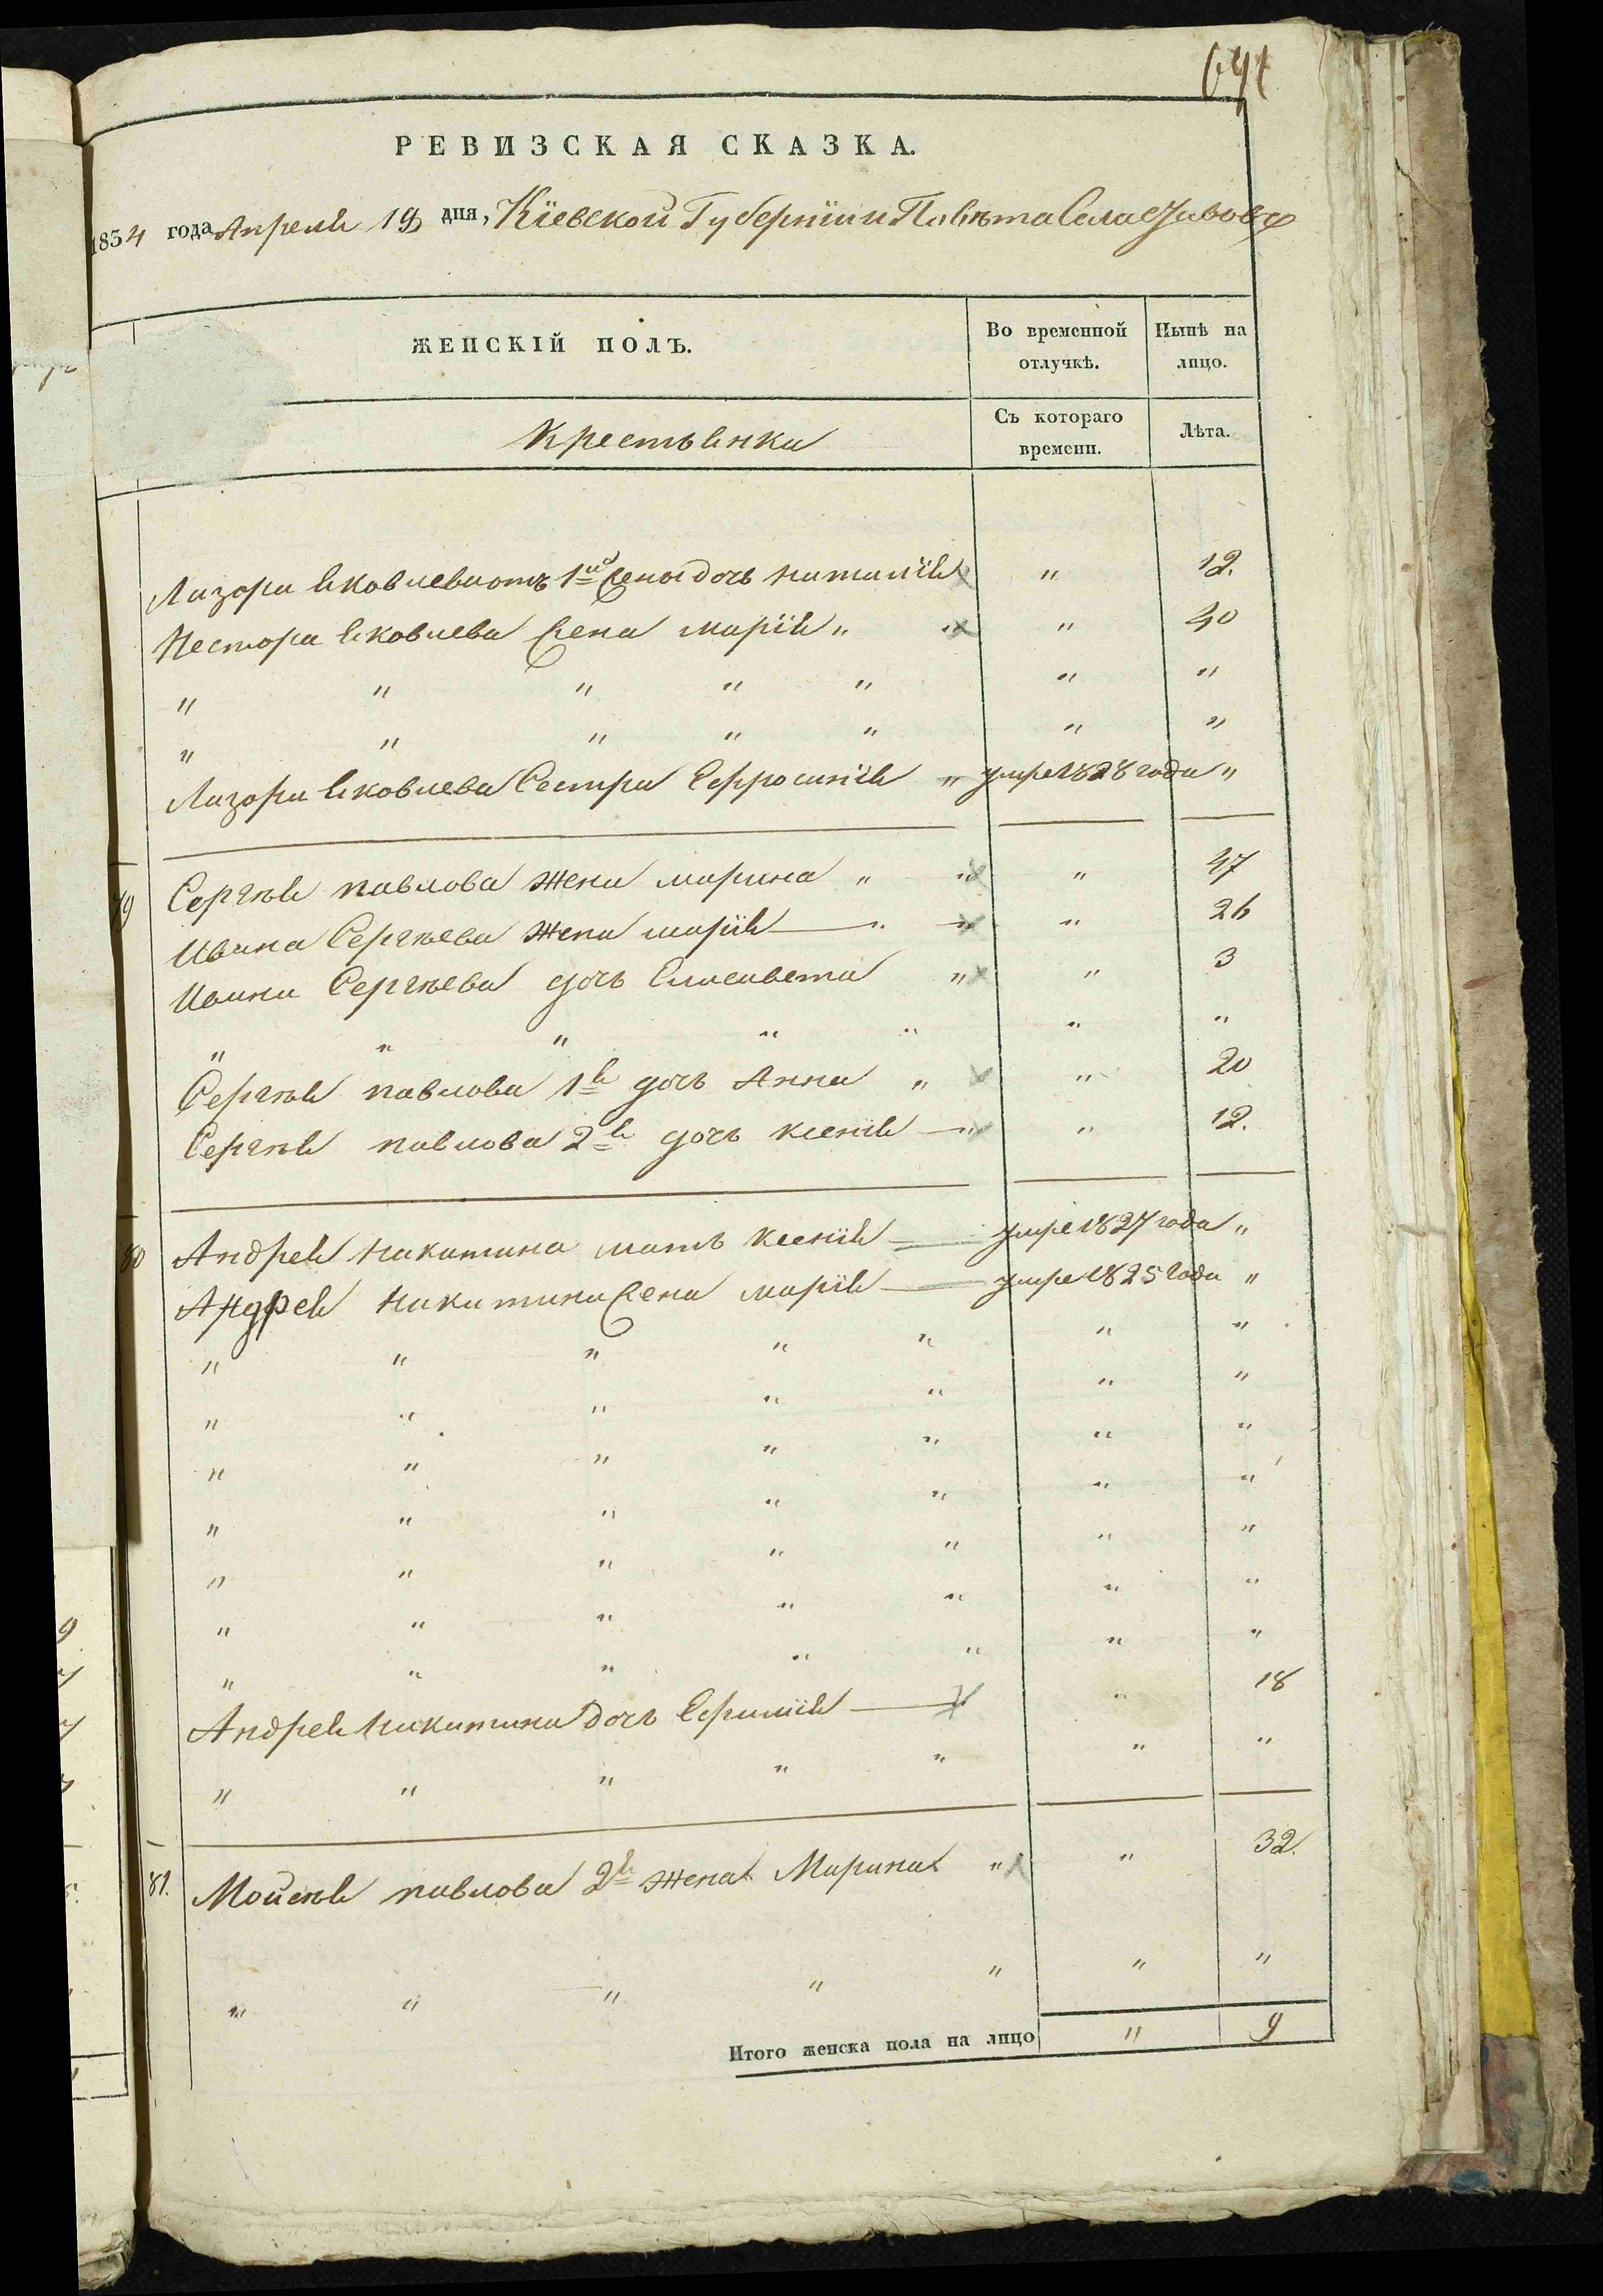 641
РЕВИЗСКАЯ СКАЗКА.
1834 года Апреля 19 дня, Кіевской Губерніи и Повѣта Села
ЖЕНСКІЙ ПОЛЪ.
Во временной отлучкѣ.
Нынѣ на лицо.
Крестьянки
Съ котораго времени.
Лѣта.
Лазора яковлева отъ 1й жены дочь наталія " 12.
Нестора яковлева жена марія " " " 40
" " " " " " "
" " " " " " "
Лазора яковлева Сестра Ефросинія " умре 1828 года "
79 Сергѣя павлова жена марина " " " 47
Ивана Сергѣева жена марія " " " 26
Ивана Сергѣева дочь Елисавета " " 3
" " " " " " "
Сергѣя павлова 1я дочь Анна " " 20
Сергѣя павлова 2я дочь ксенія " " 12.
80 Андрея никитина мать ксенія умре 1827 года "
Андрея никитина жена марія умре 1825 года "
" " " " " " "
" " " " " " "
" " " " " " "
" " " " " " "
" " " " " " "
" " " " " " "
" " " " " " "
Андрея никитина дочь " " 18
" " " " " " "
81. Мойсѣя павлова 2я жена Марина " " 32.
" " " " " " "
Итого женска пола на лицо " 9